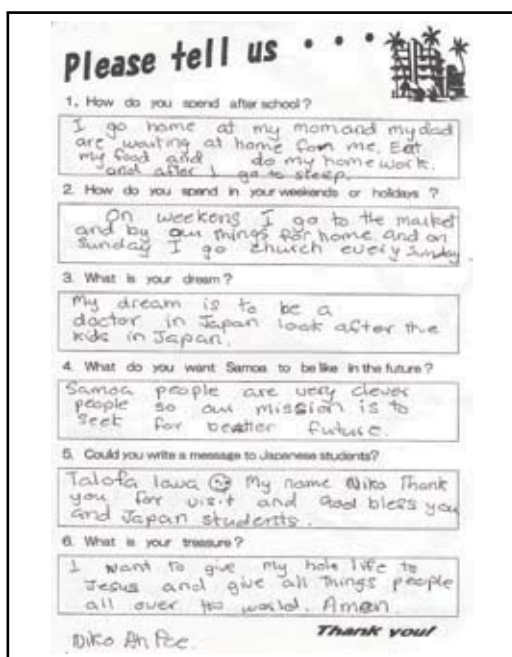 Please tell us • • •
1, How do you spend after school?
I go home at my mom and my dad
are waiting at home for me. Eat
my food and do my homework.
and after I go to sleep.
2. How do you spend in your weekends or holidays ?
On weekens I go to the market
and by our things for home and on
Sunday I go church every Sunday
3. What is your dream?
My dream is to be a
doctor in Japan look after the
kids in Japan.
4. What do you want Samoa to be like in the future?
Samoa people are very clever
people so our mission is to
seek for beatter future.
5. Could you write a message to Japanese students?
Talofa lava My name Niko Thank
you for visit and God bless you
and Japan students.
6. What is your treasure?
I want to give my hole life to
Jesus and give all things people
all over the world. Amen.
Niko Ah
Thank you!